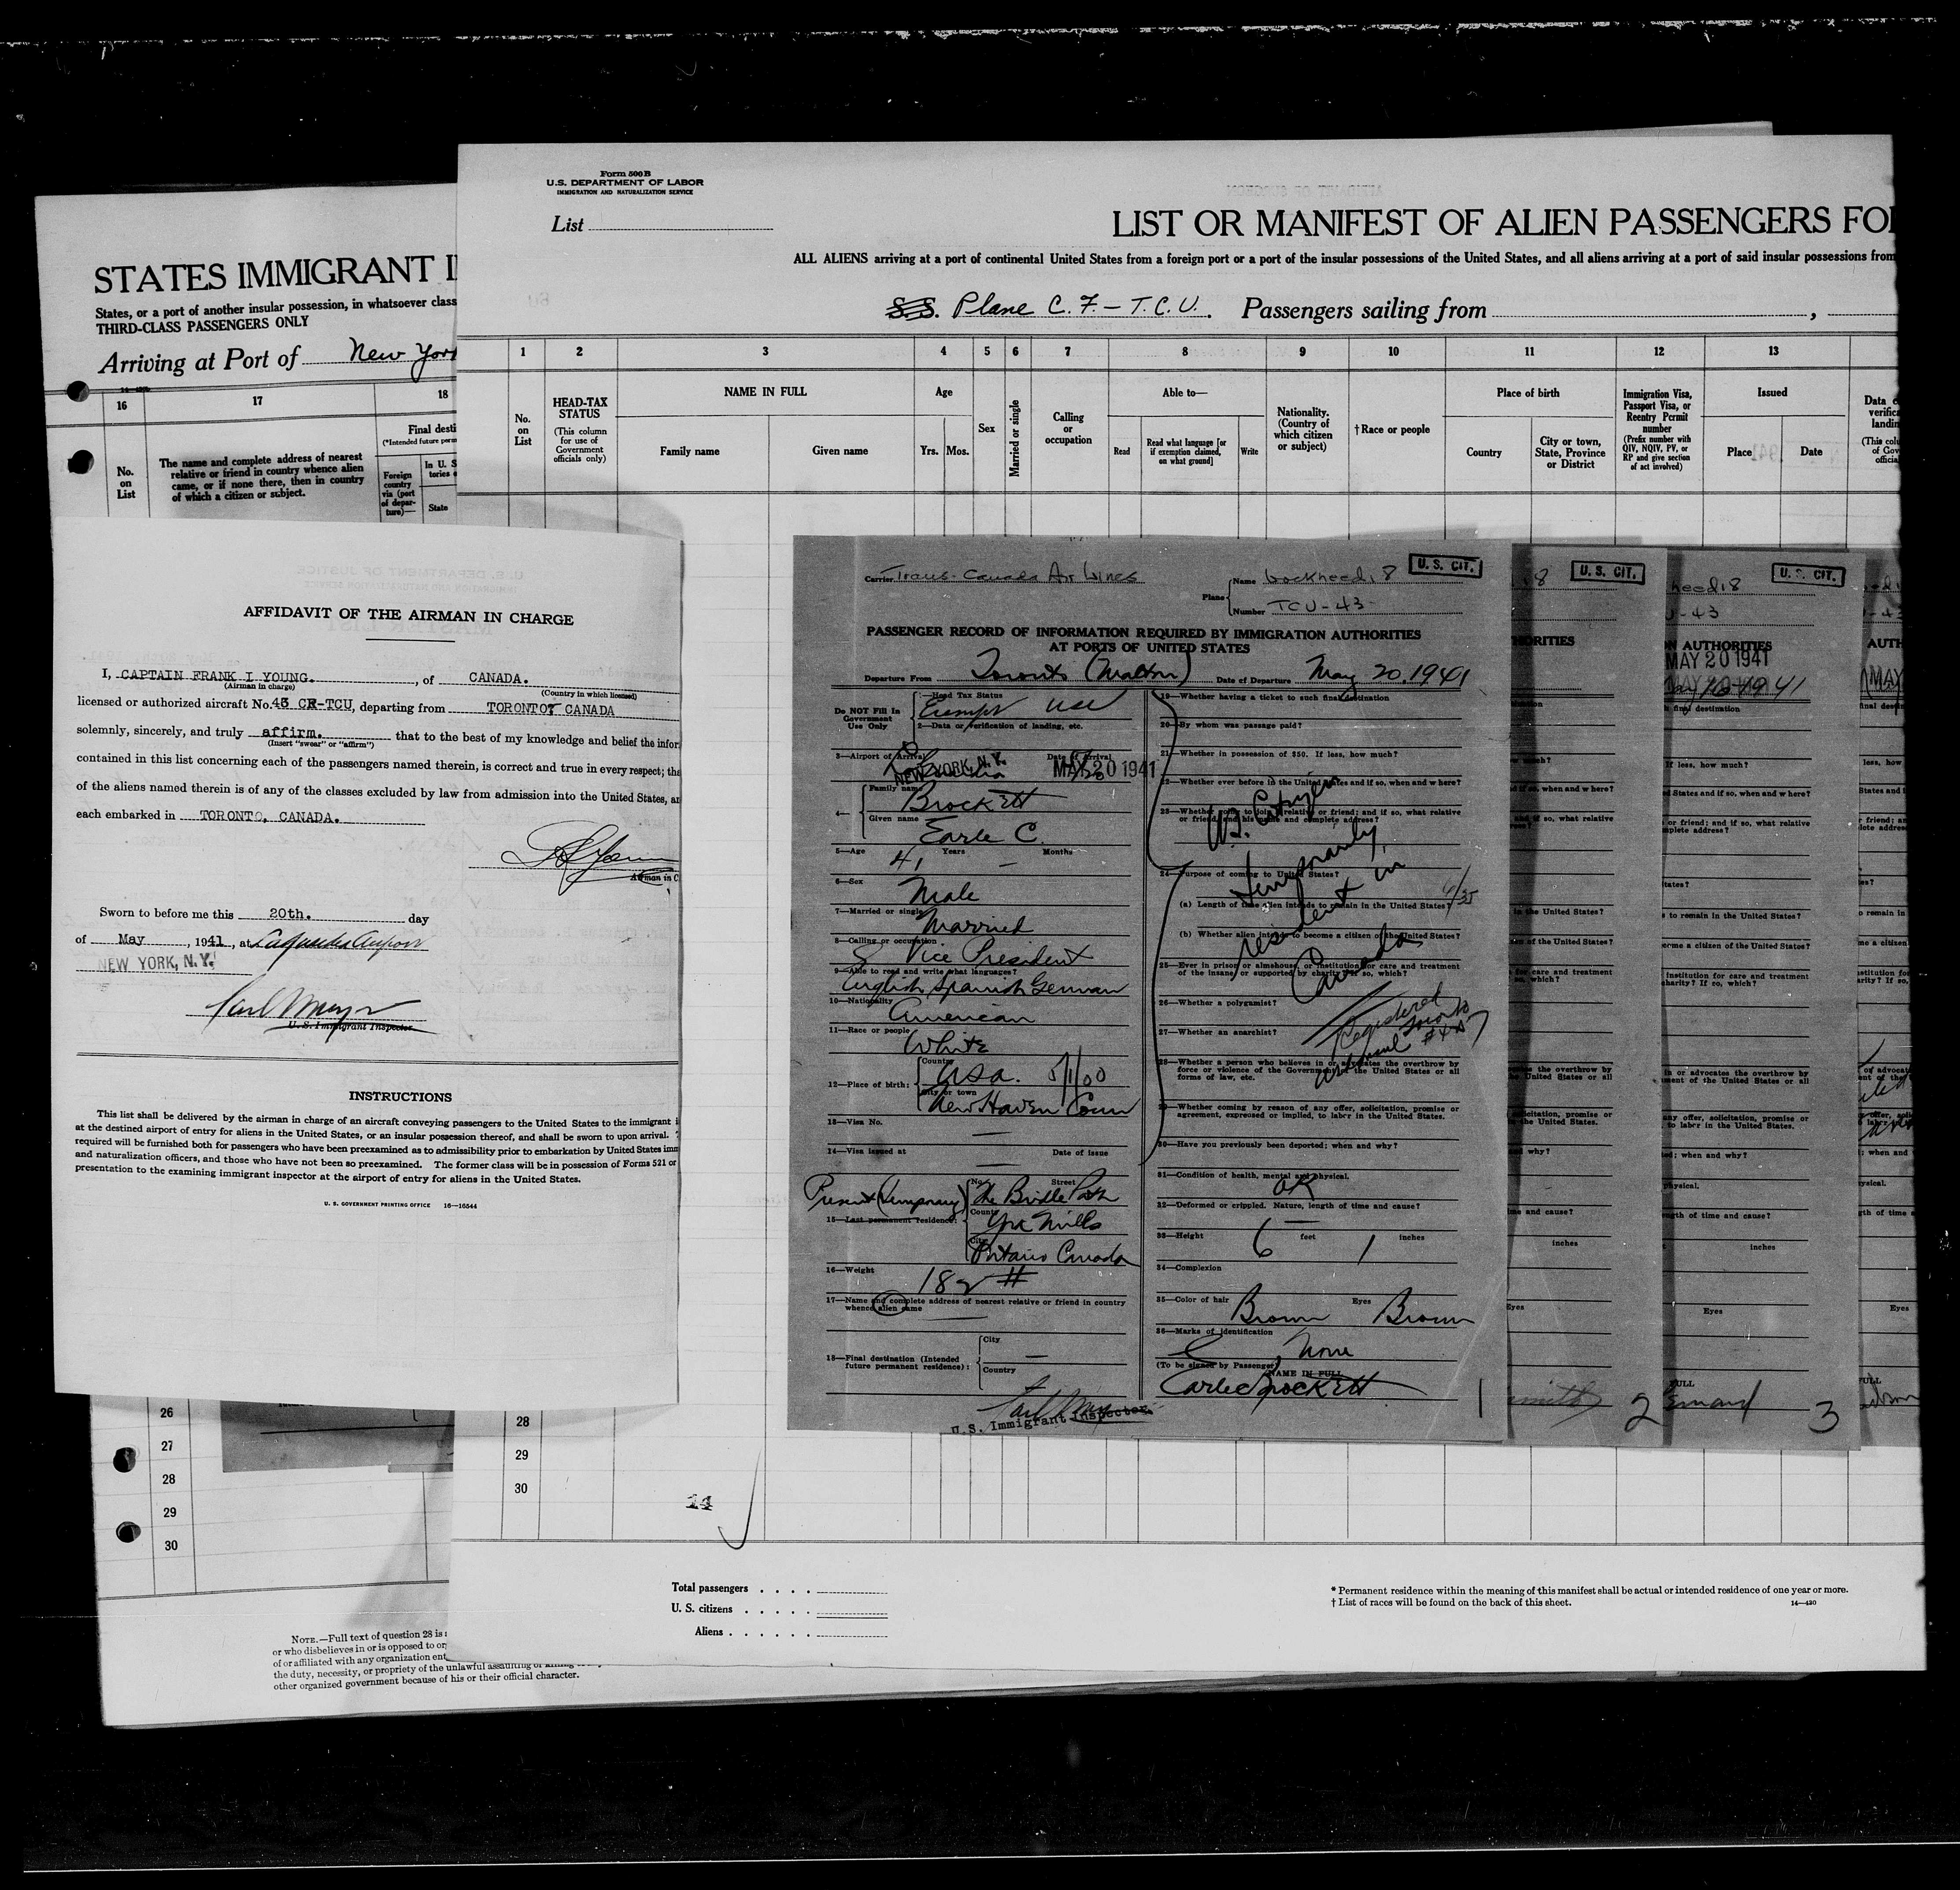 Form 500 B
U.S. DEPARTMENT OF LABOR
IMMIGRATION AND NATURALIZATION SERVICE
List
LIST OR MANIFEST OF ALIEN PASSENGERS FO
ALL ALIENS arriving at a port of continental United States from a foreign port or a port of the insular possessions of the United States, and all aliens arriving at a port of said insular possessions from
S.S. Plane C.F.-T.C.U. Passengers sailing from
1 2 3 4 5 6 7 8 9 10 11 12 13
No. on List
HEAD-TAX STATUS
(This column for use of Government officials only)
NAME IN FULL
Family name Given name
Age
Yrs. Mos.
Sex
Married or single
Calling or occupation
Able to—
Read
Read what language [or if exemption claimed, on what ground]
Write
Nationality. (Country of which citizen or subject)
†Race or people
Place of birth
Country
City or town, State, Province or District
Immigration Visa, Passport Visa, or Reentry Permit number
(Prefix number with QIV, NQIV, PV, or RP and give section of act involved)
Issued
Place Date
STATES IMMIGRANT I
States, or a port of another insular possession, in whatsoever class
THIRD-CLASS PASSENGERS ONLY
Arriving at Port of New York
16 17 18
No. on List
The name and complete address of nearest relative or friend in country whence alien came, or if none there, then in country of which a citizen or subject.
Final desti
Foreign country via (port of departure)—
In U. S
State
AFFIDAVIT OF THE AIRMAN IN CHARGE
I, CAPTAIN FRANK I YOUNG. , of CANADA.
(Airman in charge) (Country in which licensed)
licensed or authorized aircraft No. CF-TCU, departing from TORONTO CANADA
solemnly, sincerely, and truly affirm. that to the best of my knowledge and belief the infor
(Insert "swear" or "affirm")
contained in this list concerning each of the passengers named therein, is correct and true in every respect; tha
of the aliens named therein is of any of the classes excluded by law from admission into the United States, an
each embarked in TORONTO, CANADA.
Airman in C
Sworn to before me this 20th. day
of May , 1941, at
NEW YORK, N.Y.
U.S. Immigrant Inspector
INSTRUCTIONS
This list shall be delivered by the airman in charge of an aircraft conveying passengers to the United States to the immigrant i
at the destined airport of entry for aliens in the United States, or an insular possession thereof, and shall be sworn to upon arrival.
required will be furnished both for passengers who have been preexamined as to admissibility prior to embarkation by United States imm
and naturalization officers, and those who have not been so preexamined. The former class will be in possession of Forms 521 or
presentation to the examining immigrant inspector at the airport of entry for aliens in the United States.
U. S. GOVERNMENT PRINTING OFFICE 16—16544
Carrier Trans-Canada Air Lines
Plane Name Lockheed 18
Number TCU-43
U. S. CIT.
PASSENGER RECORD OF INFORMATION REQUIRED BY IMMIGRATION AUTHORITIES
AT PORTS OF UNITED STATES
Departure From Toronto (Malton) Date of Departure May 20, 1941
Do NOT Fill In Government Use Only
1—Head Tax Status
Exempt USC
2—Data or verification of landing, etc.
3—Airport of Arrival Date of Arrival
NEW YORK, N.Y. MAY 20 1941
4— Family name Brockett
Given name Earle C.
5—Age 41 Years — Months
6—Sex Male
7—Married or single Married
8—Calling or occupation Vice President
9—Able to read and write what languages?
English Spanish German
10—Nationality American
11—Race or people White
12—Place of birth: Country USA. 5/1/00
City or town New Haven Conn
13—Visa No. —
14—Visa issued at — Date of issue
Present (temporary)
15—Last permanent residence: No. Street The Bridle Path
County York Mills
City Ontario Canada
16—Weight 182 #
17—Name and complete address of nearest relative or friend in country whence alien came
18—Final destination (Intended future permanent residence): City —
Country
U. S. Immigrant Inspector
19—Whether having a ticket to such final destination
20—By whom was passage paid?
21—Whether in possession of $50. If less, how much?
22—Whether ever before in the United States and if so, when and where?
23—Whether going to join a relative or friend; and if so, what relative or friend, and his name and complete address?
24—Purpose of coming to United States?
(a) Length of time alien intends to remain in the United States?
(b) Whether alien intends to become a citizen of the United States?
25—Ever in prison or almshouse, or institution for care and treatment of the insane, or supported by charity? If so, which?
26—Whether a polygamist?
27—Whether an anarchist?
28—Whether a person who believes in or advocates the overthrow by force or violence of the Government of the United States or all forms of law, etc.
29—Whether coming by reason of any offer, solicitation, promise or agreement, expressed or implied, to labor in the United States.
30—Have you previously been deported; when and why?
31—Condition of health, mental and physical.
OK
32—Deformed or crippled. Nature, length of time and cause?
—
33—Height 6 feet 1 inches
34—Complexion
35—Color of hair Brown Eyes Brown
36—Marks of identification None
(To be signed by Passenger) NAME IN FULL
Earle C Brockett
US Citizen
temporarily
resident in
Canada
Registered
Toronto
1
U. S. CIT.
2
U. S. CIT.
MAY 20 1941
3
26
27
28
29
30
28
29
30
14
Total passengers
U. S. citizens
Aliens
* Permanent residence within the meaning of this manifest shall be actual or intended residence of one year or more.
† List of races will be found on the back of this sheet.
14—430
NOTE.—Full text of question 28 is
or who disbelieves in or is opposed to or
of or affiliated with any organization ent
the duty, necessity, or propriety of the unlawful assaulting or killing
other organized government because of his or their official character.